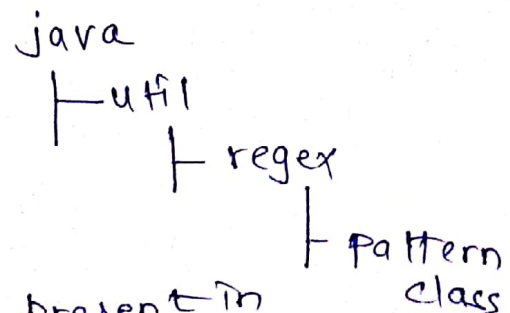 java
util
regex
pattern
class
present in